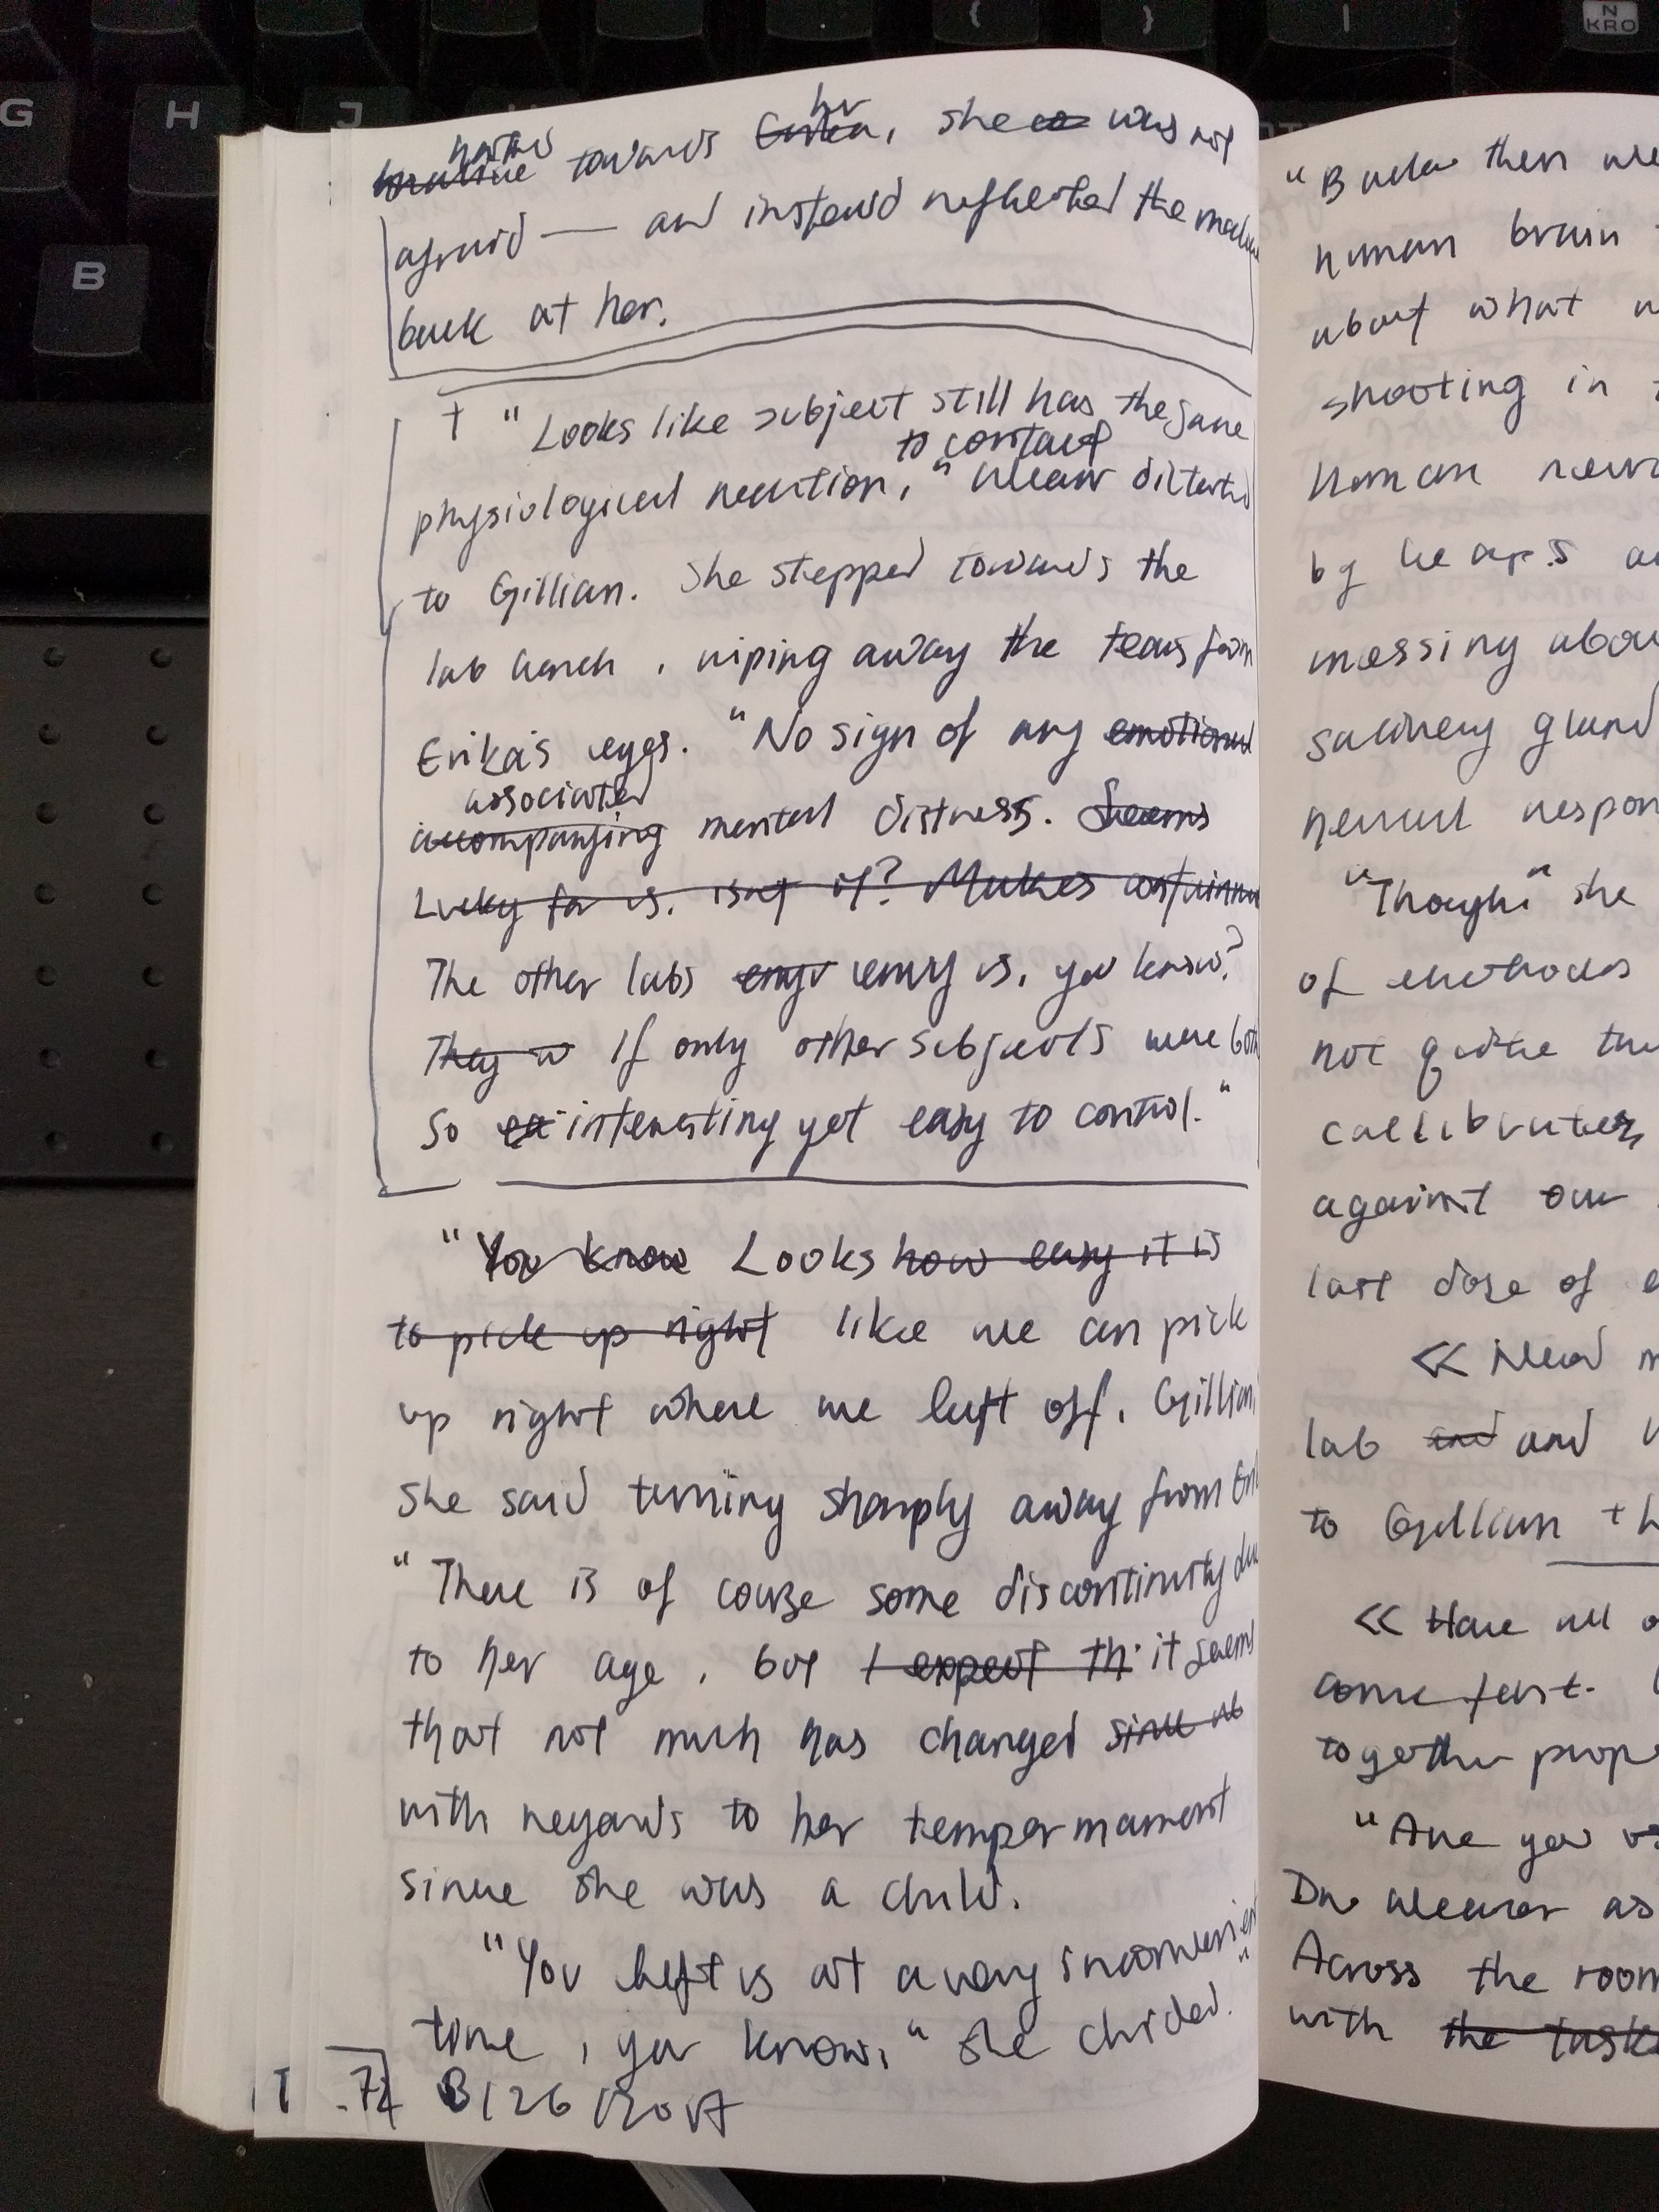 G H J
B
N
KRO
her
towards Erika, she was not
afraid — and instead reflected the
back at her.
+ "Looks like subject still has the same
to contact
physiological reaction," Wear dictated
to Gillian. She stepped towards the
lab bench, wiping away the tears from
Erika's eyes. "No sign of any emotional
associated
accompanying mental distress. Seems
Lucky for us, isn't it? Makes
The other labs envy us, you know?
They w If only other subjects were both
so ea interesting yet easy to control."
"You know Looks how easy it is
to pick up right like we can pick
up right where we left off, Gillian
she said turning sharply away from
"There is of course some discontinuity due
to her age, but I expect th it seems
that not much has changed since
with regards to her tempermament
since she was a child.
"You left us at a very inconvenient
time, you know," she chided."
72 8/26/2017
"B then we
human brain
about what
shooting in
human
by heaps
messing abou
salivery gland
neural respon
"Though" she
of electrodes
not quite the
callibrates
against our
last dose of
<< Wear
lab and and
to Gillian + h
<< Have all
come fast.
together prope
"Are you
Dr Wearer as
Across the room
with the task